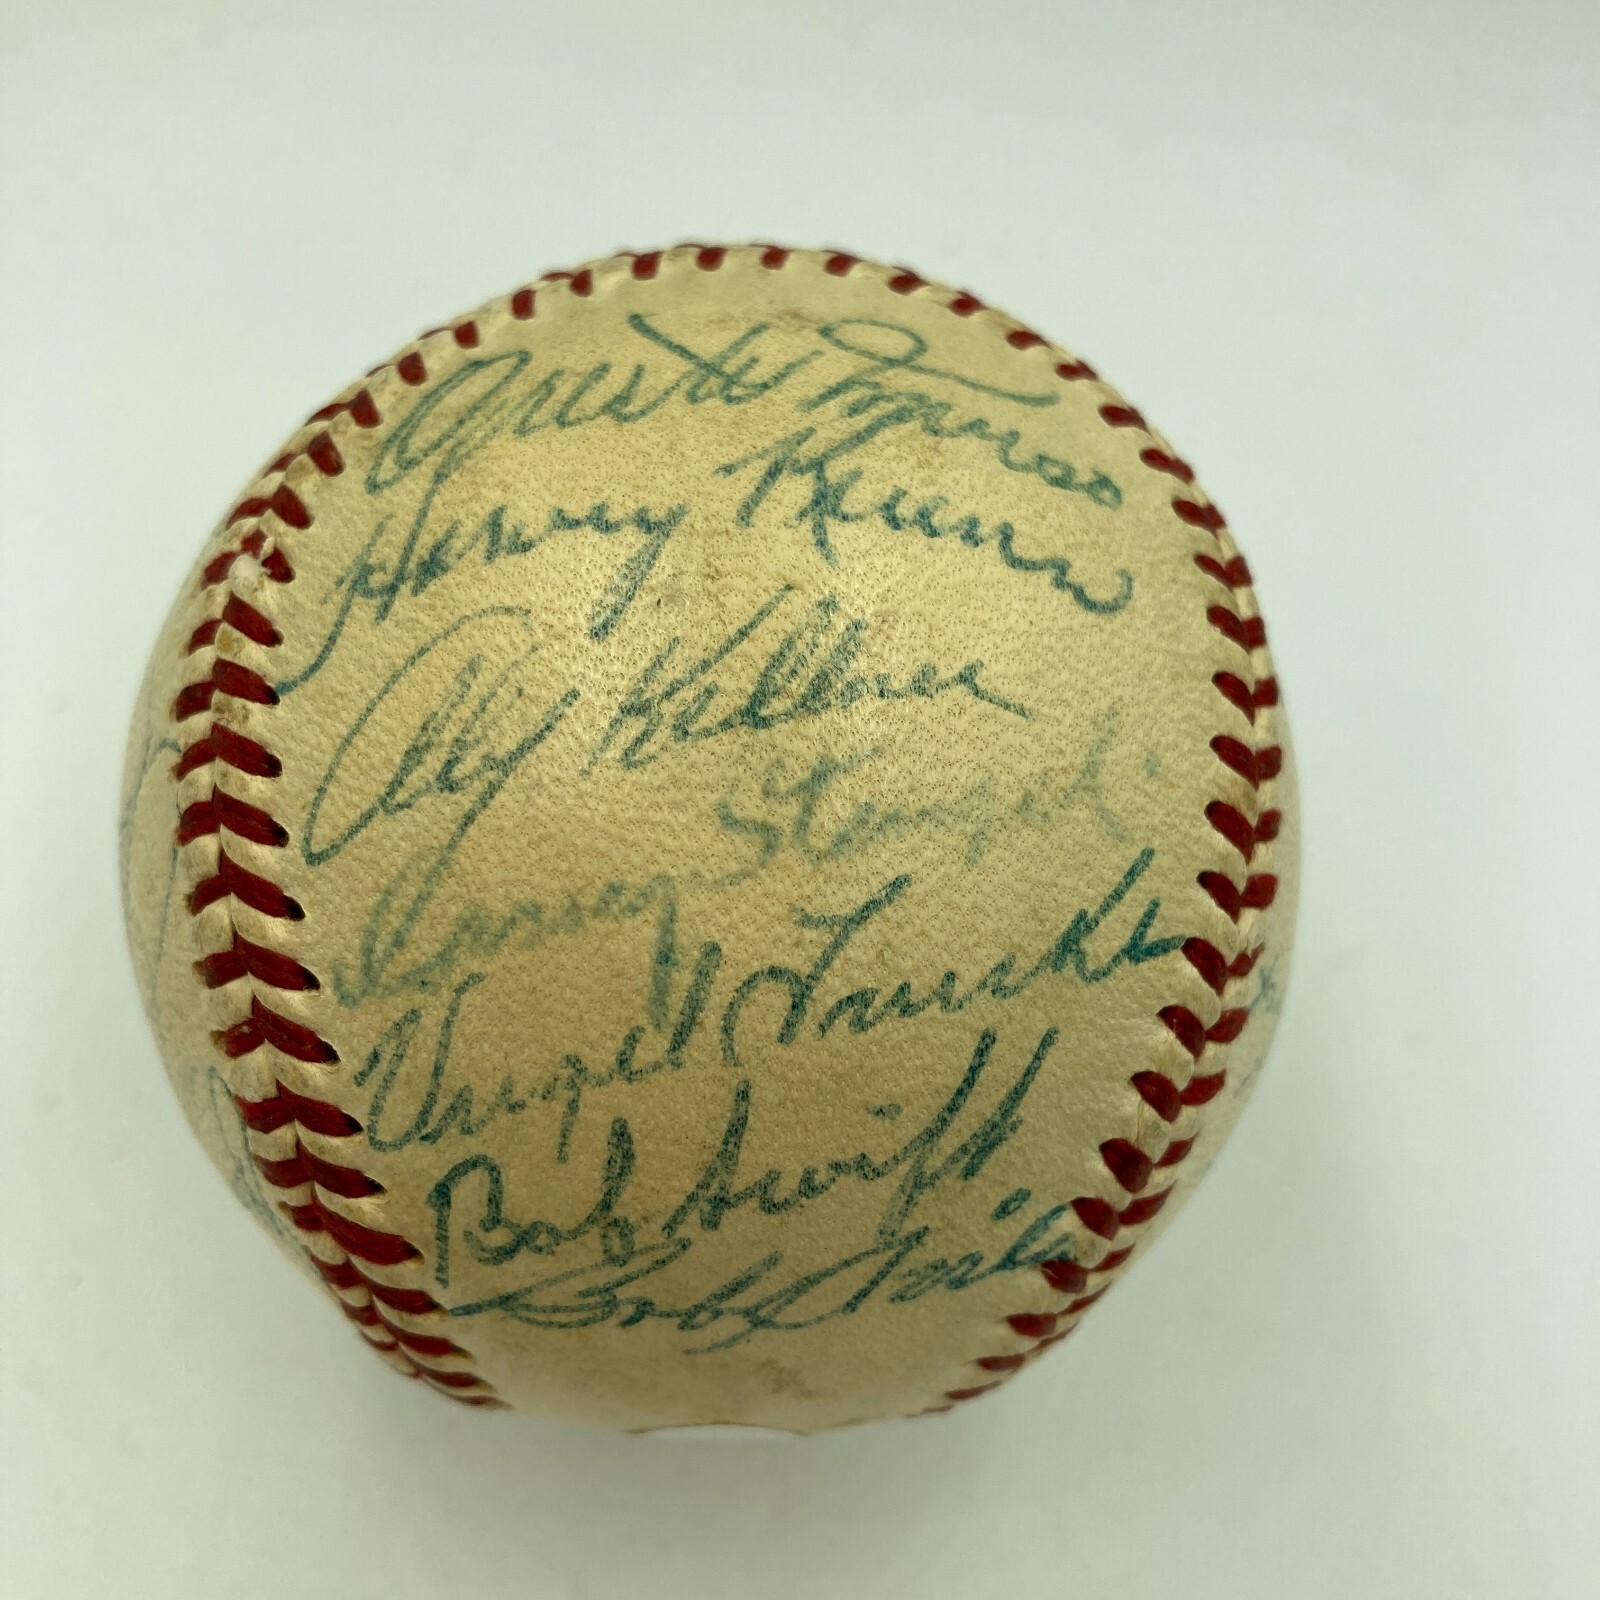 Orestes Minoso
Harvey Kuenn
Alex Kellner
Casey Stengel
Virgil Trucks
Bob Swift
Bob